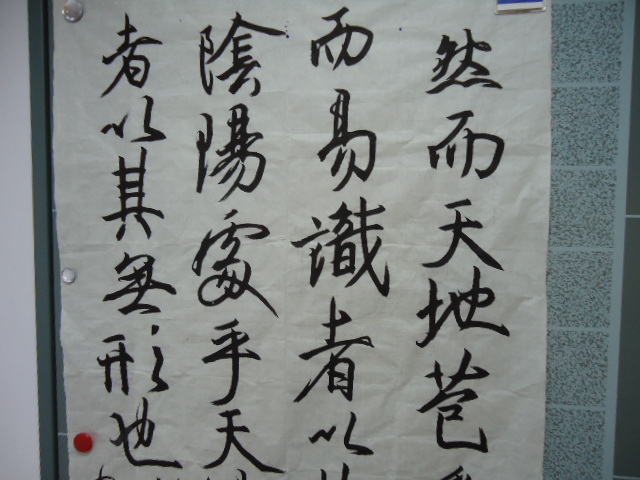 然而天地苞
而易識者以
陰陽處乎天
者以其無形也